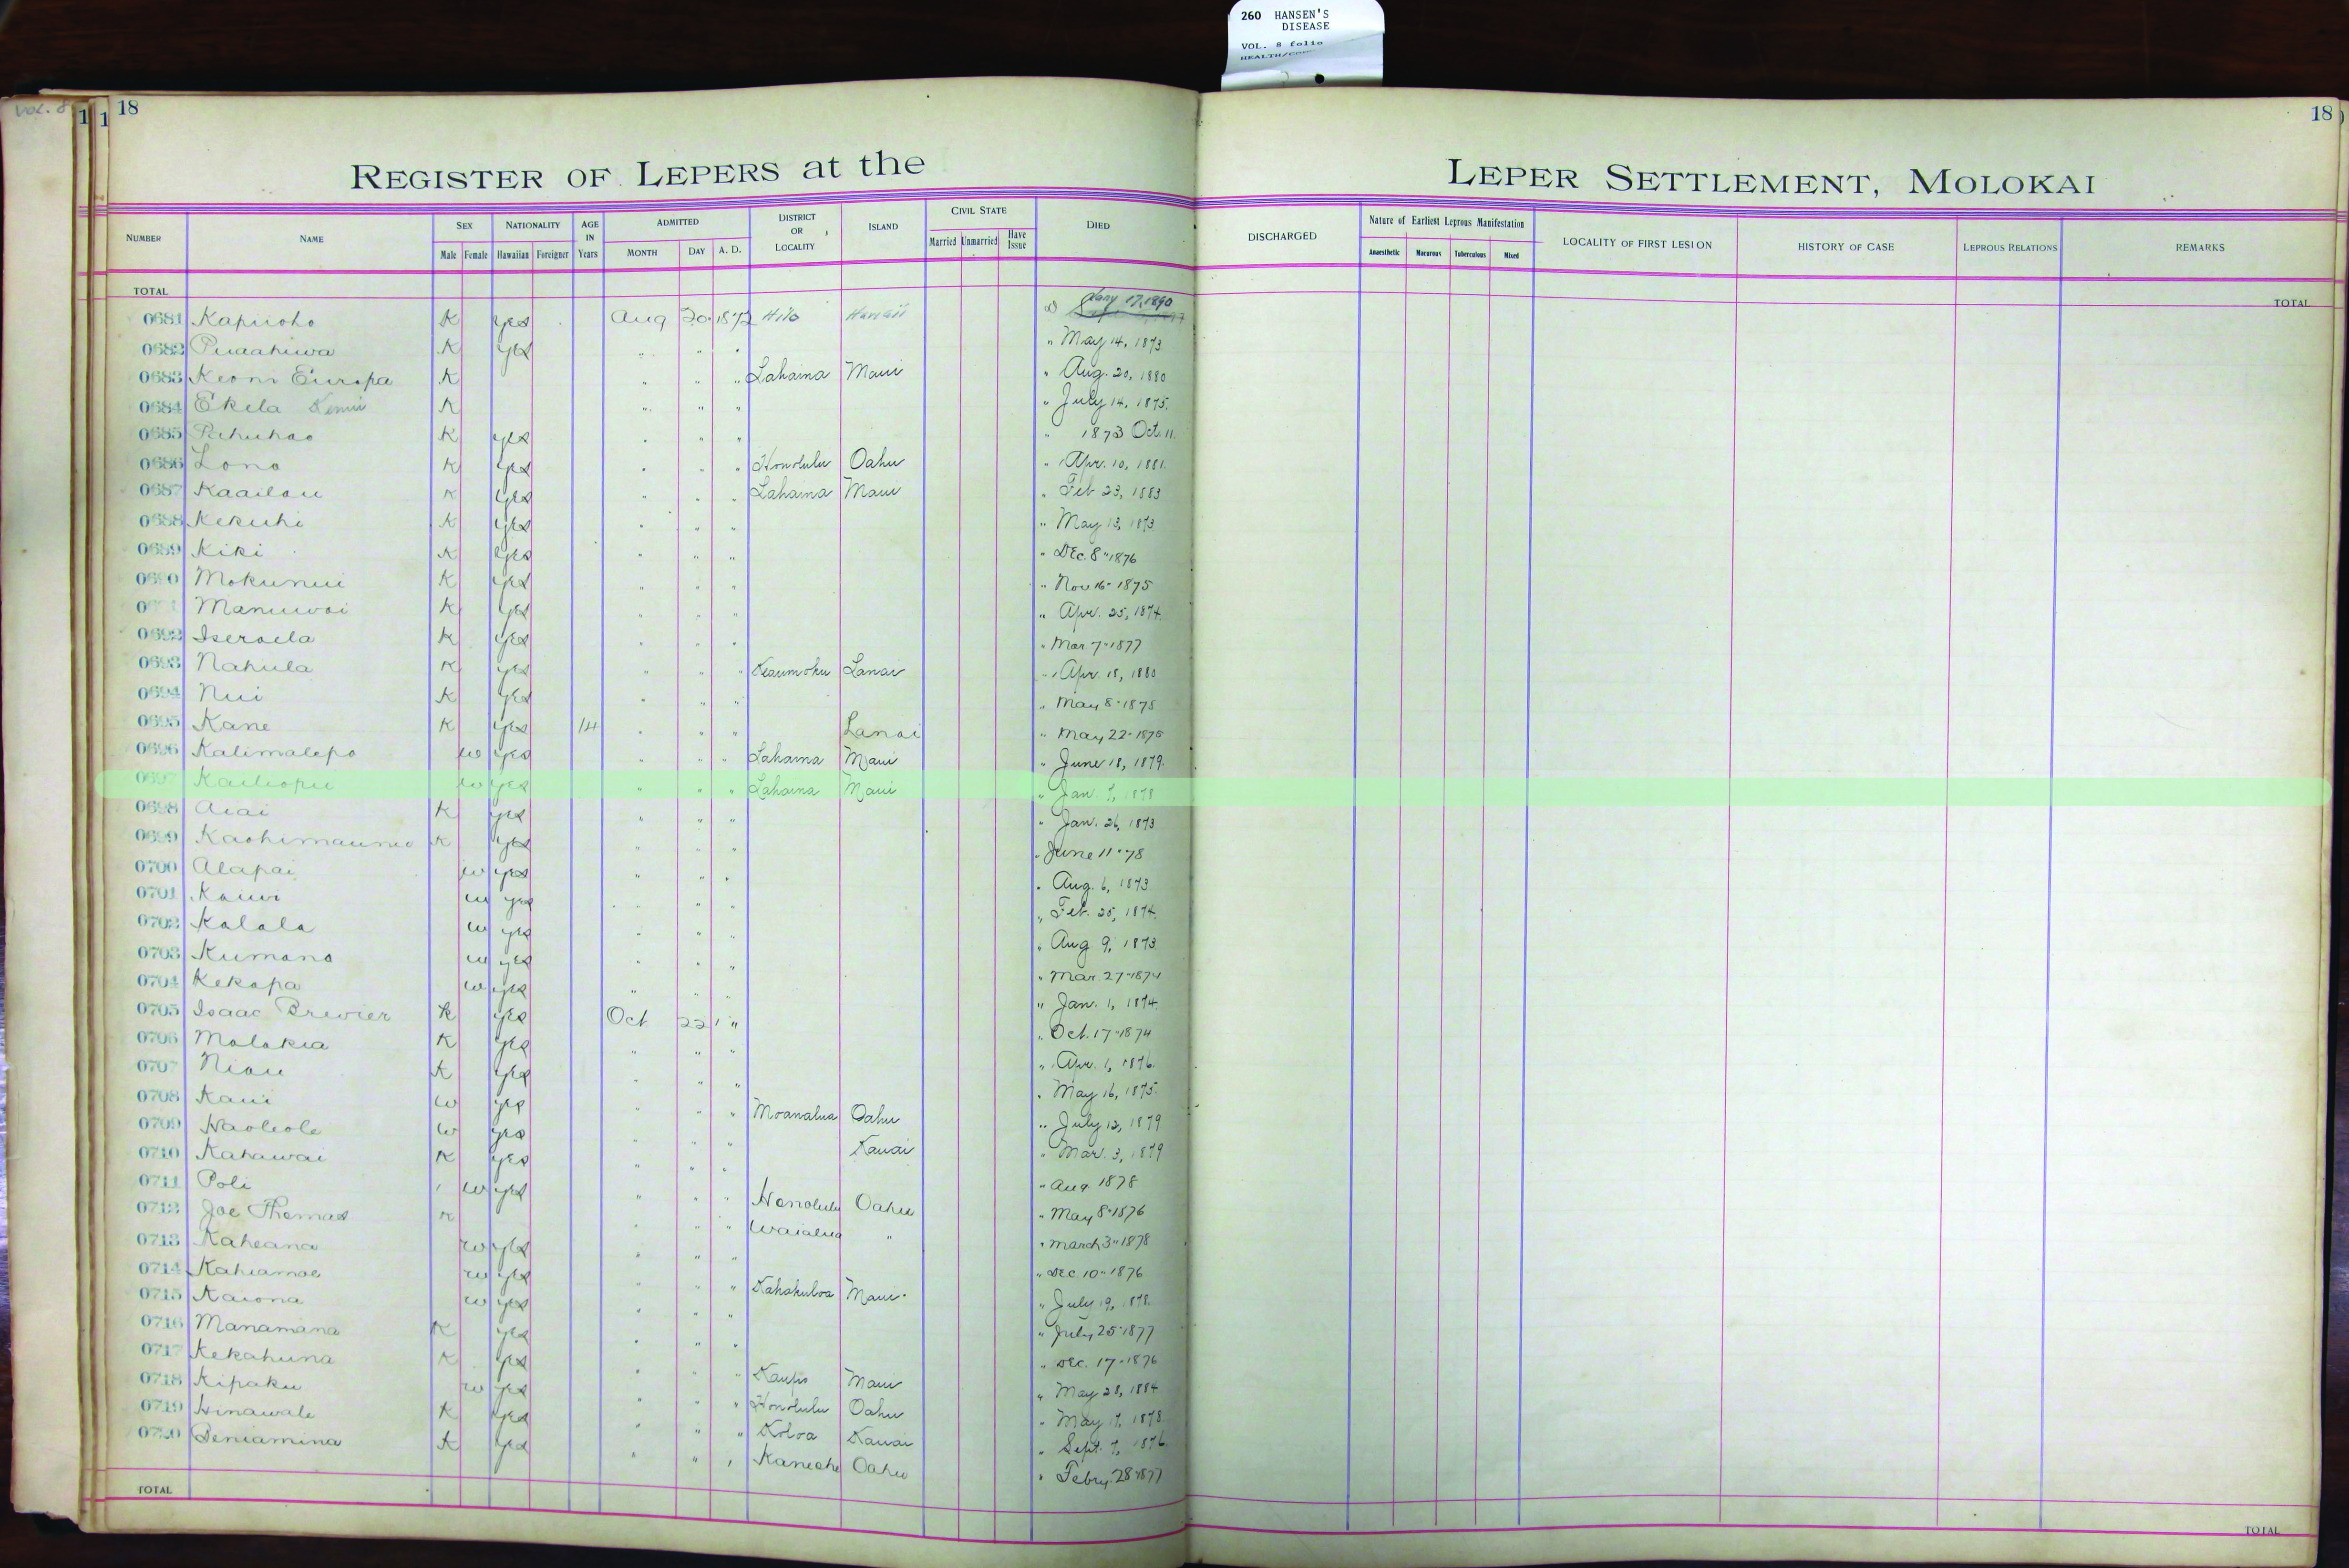 260 HANSEN'S
DISEASE
VOL. 8 folio
VOL. 8
1 1 18
18
REGISTER OF LEPERS at the LEPER SETTLEMENT, MOLOKAI
NUMBER NAME SEX Male Female NATIONALITY Hawaiian Foreigner AGE IN Years ADMITTED MONTH DAY A. D. DISTRICT OR LOCALITY ISLAND CIVIL STATE Married Unmarried Have Issue DIED DISCHARGED Nature of Earliest Leprous Manifestation Anaesthetic Macurous Tuberculous Mixed LOCALITY OF FIRST LESION HISTORY OF CASE LEPROUS RELATIONS REMARKS
TOTAL TOTAL
0681 Kapiioho K yes Aug 20 1872 Hilo Hawaii D Jany 17, 1890
0682 Puaahiwa K yes " " " " May 14, 1873
0683 Keoni Europa K " " " Lahaina Maui " Aug. 20, 1880
0684 Ekela K " " " " July 14, 1875.
0685 Pahuhao K yes " " " " 1873 Oct. 11.
0686 Lono K yes " " " Honolulu Oahu " Apr. 10, 1881.
0687 Kaailau K yes " " " Lahaina Maui " Feb 23, 1883
0688 Kekuhi K yes " " " " May 13, 1873
0689 Kiki K yes " " " " DEc. 8" 1876
0690 Mokunui K yes " " " " Nov 16- 1875
Manuwai K yes " " " " Apr. 25, 1874.
0692 Iseraela K yes " " " " Mar 7" 1877
0693 Nahula K yes " " " Keaumoku Lanai " Apr. 18, 1880
0694 Nui K yes " " " " May 8" 1875
0695 Kane K yes 14 " " " Lanai " May 22- 1875
0696 Kalimalepo w yes " " " Lahaina Maui " June 18, 1879.
0697 Kailiopu w yes " " " Lahaina Maui " Jan. 7, 1878
0698 Aiai K yes " " " " Jan. 26, 1873
0699 K yes " " " " June 11" 78
0700 Alapai w yes " " " " Aug. 6, 1873
0701 Kauwi w yes " " " " Feb. 25, 1874.
0702 Kalala w yes " " " " Aug 9, 1873.
0703 Kumano w yes " " " " Mar 27" 1874
0704 Kekapa w yes " " " " Jan. 1, 1874.
0705 Isaac Brewier K yes Oct 22 " " Oct. 17" 1874
0706 Molokia K yes " " " " Apr. 1, 1876.
0707 Niau K yes " " " " May 16, 1875.
0708 Kaui w yes " " " Moanalua Oahu " July 12, 1879
0709 Haoleole w yes " " " Kauai " Mar. 3, 1879
0710 Kahawai K yes " " " " Aug 1878
0711 Poli w yes " " " Honolulu Oahu " May 8" 1876
0712 Joe Thomas K " " " Waialua " " March 3" 1878
0713 Kaheana w yes " " " " DEC. 10" 1876
0714 Kahiamoe w yes " " " Kahakuloa Maui " July 19, 1878.
0715 Kaiona w yes " " " " July 25" 1877
0716 Manamana K yes " " " " DEC. 17" 1876
0717 Kekahuna K yes " " " Kaupo Maui " May 28, 1884
0718 Kipaku w yes " " " Honolulu Oahu " May 17, 1878.
0719 Hinawale K yes " " " Koloa Kauai " Sept. 7, 1876.
0720 Beniamina K yes " " " Kaneohe Oahu " Febry. 28" 1877
TOTAL TOTAL